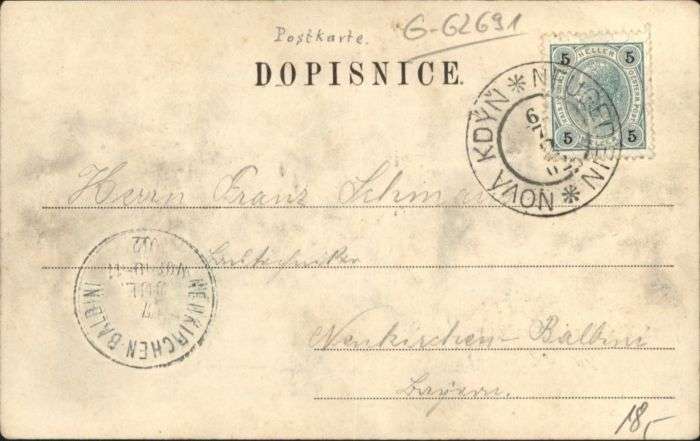 Postkarte.
G-62691
DOPISNICE.
5 HELLER 5
5 5
NEUGEDEIN * NOVÁ KDYŇ *
Herrn Franz
Bautechniker
NEUKIRCHEN-BALBINI
7 JUL.
02
Neukirchen-Balbini
Bayern.
18,-